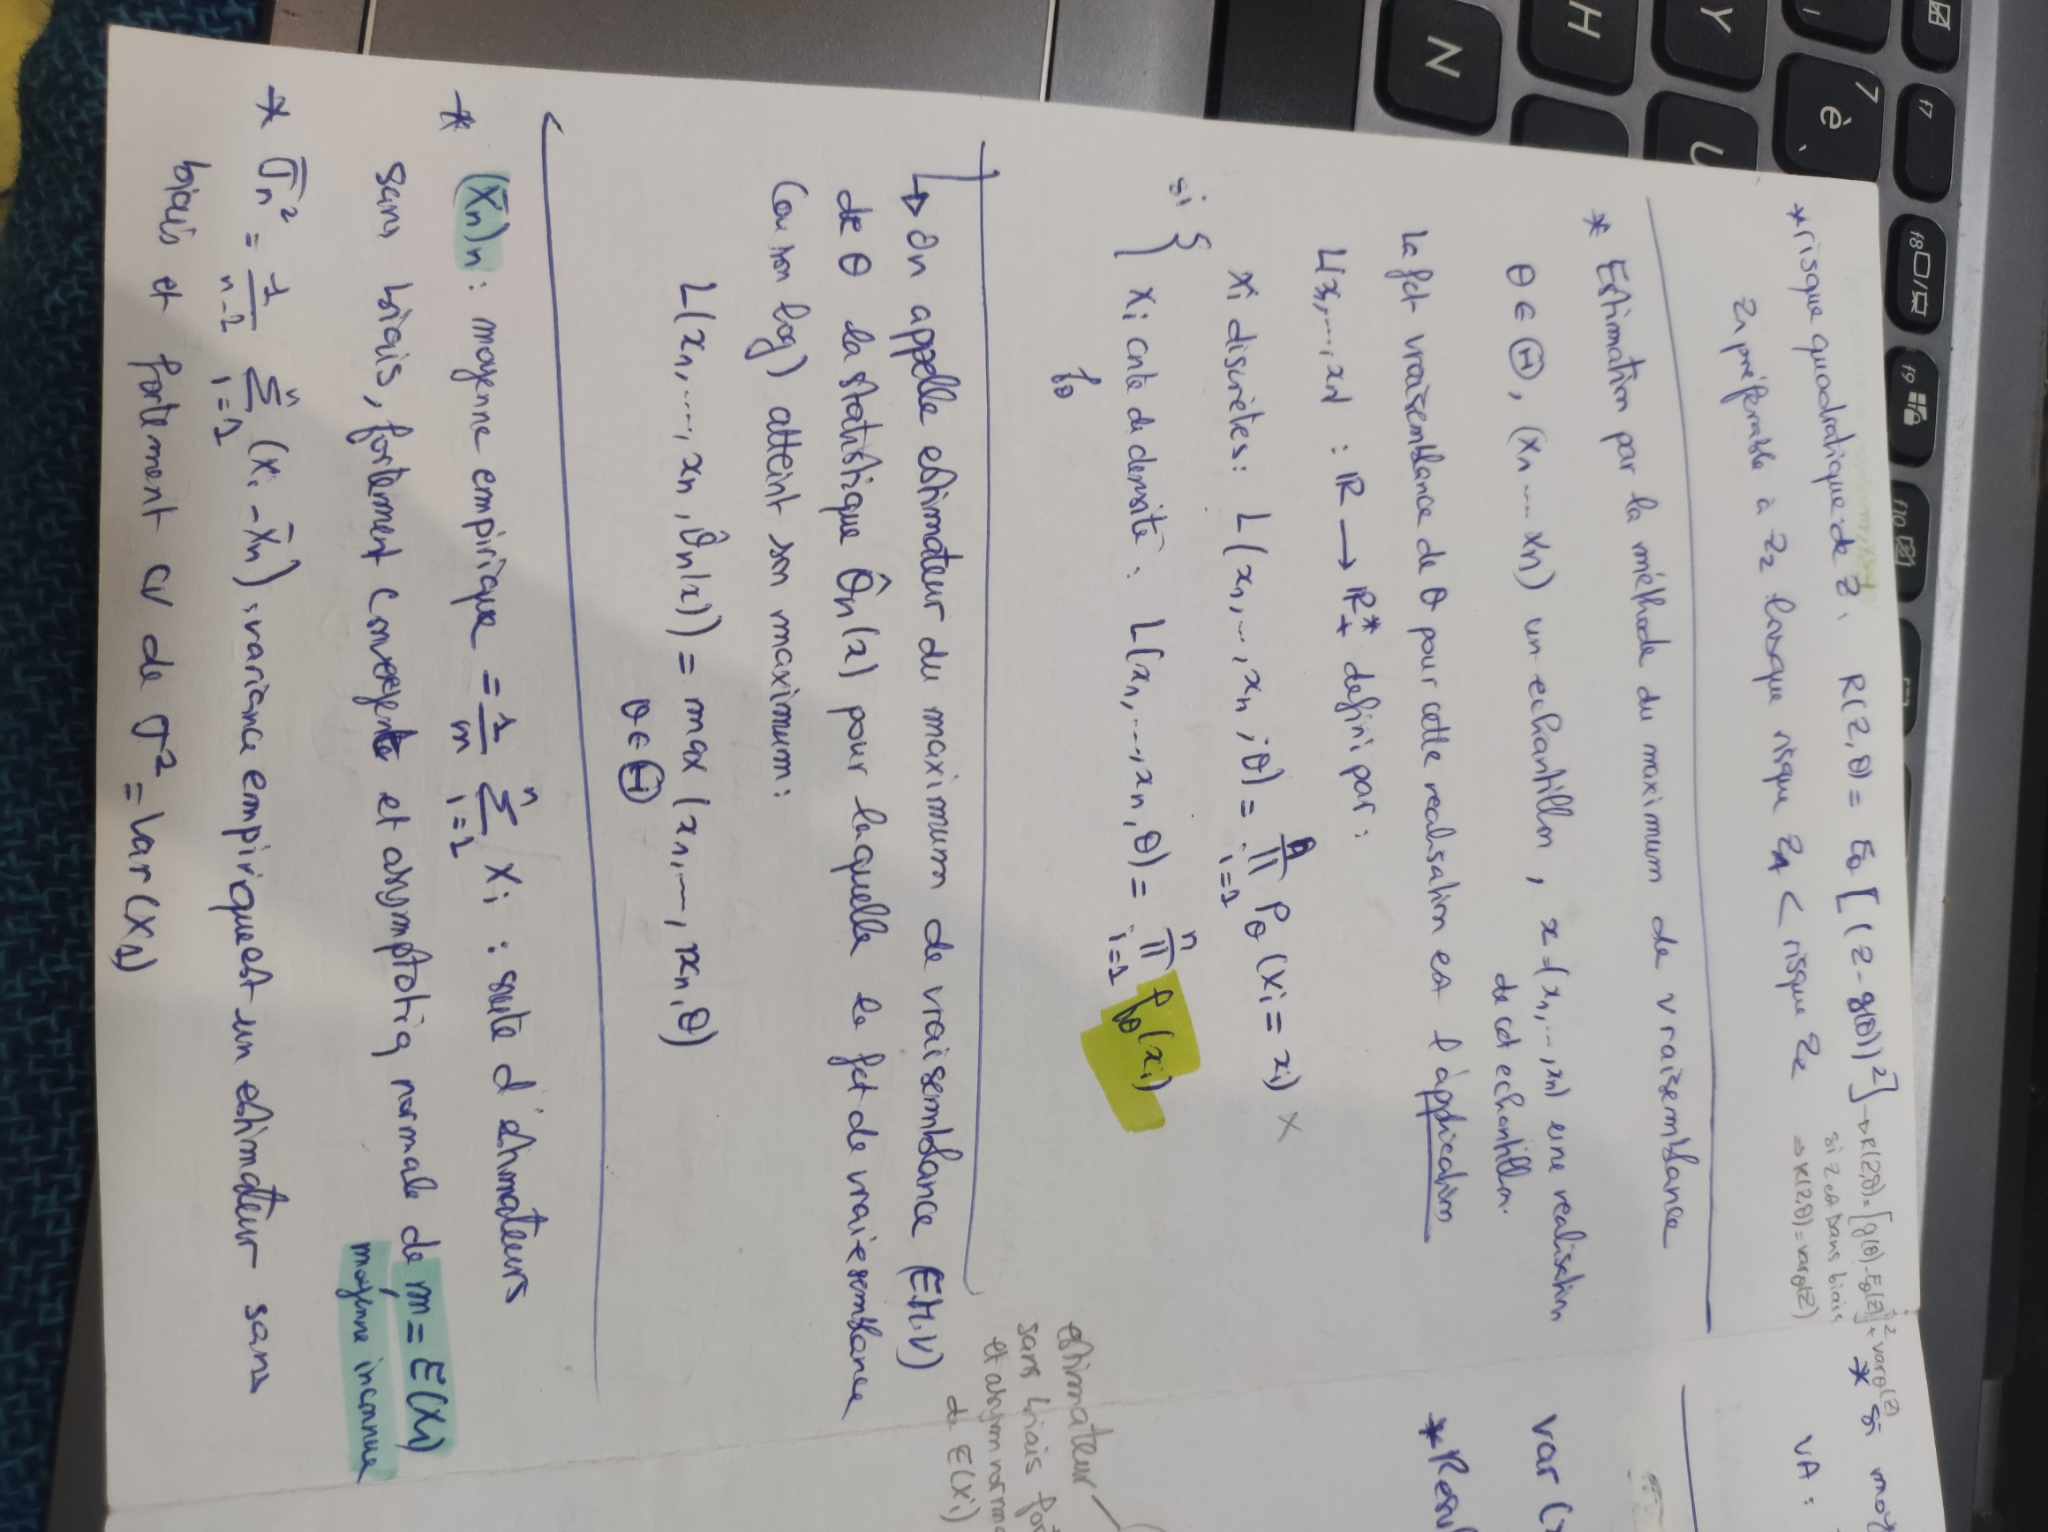 f7
f8
f9
f10
7
è
Y
U
H
N
*risque quadratique de Z. R(Z,θ) = Eθ [(Z-g(θ))²] → R(Z,θ)=[g(θ)-Eθ(Z)]² + varθ(Z)
si Z est sans biais
⇒ R(Z,θ)=varθ(Z)
Z1 préférable à Z2 lorsque risque Z1 < risque Z2
* Estimation par la méthode du maximum de vraisemblance
θ ∈ Θ, (X1 ... Xn) un echantillon, x=(x1,...,xn) une realisation
de cet echantillon.
La fct vraisemblance de θ pour cette realisation est l'application
L(x1,...,xn) : ℝ → ℝ*+ defini par:
Xi discrètes: L(x1,...,xn ;θ) = ∏ i=1 n Pθ (Xi = xi) ×
si {
Xi cnte de densité: L(x1,...,xn,θ) = ∏ i=1 n fθ(xi)
fθ
↳ On appelle estimateur du maximum de vraisemblance (E.M.V)
de θ la statistique θ̂n(x) pour laquelle la fct de vraiesemblance
(ou son log) atteint son maximum:
L(x1,....,xn,θ̂n(x)) = max (x1,...,xn,θ)
θ∈Θ
* (X̄n)n : moyenne empirique = 1/n ∑ i=1 n Xi : suite d'estimateurs
sans biais, fortement convergente et asymptotiq normale de m = E(X1)
moyenne inconnue
* σ̄n² = 1/n-1 ∑ i=1 n (Xi - X̄n) : variance empirique est un estimateur sans
biais et fortement cv de σ² = Var(X1)
* si moy
VA :
var (
*Resul
estimateur
sans biais for
et asym norma
de E(Xi)